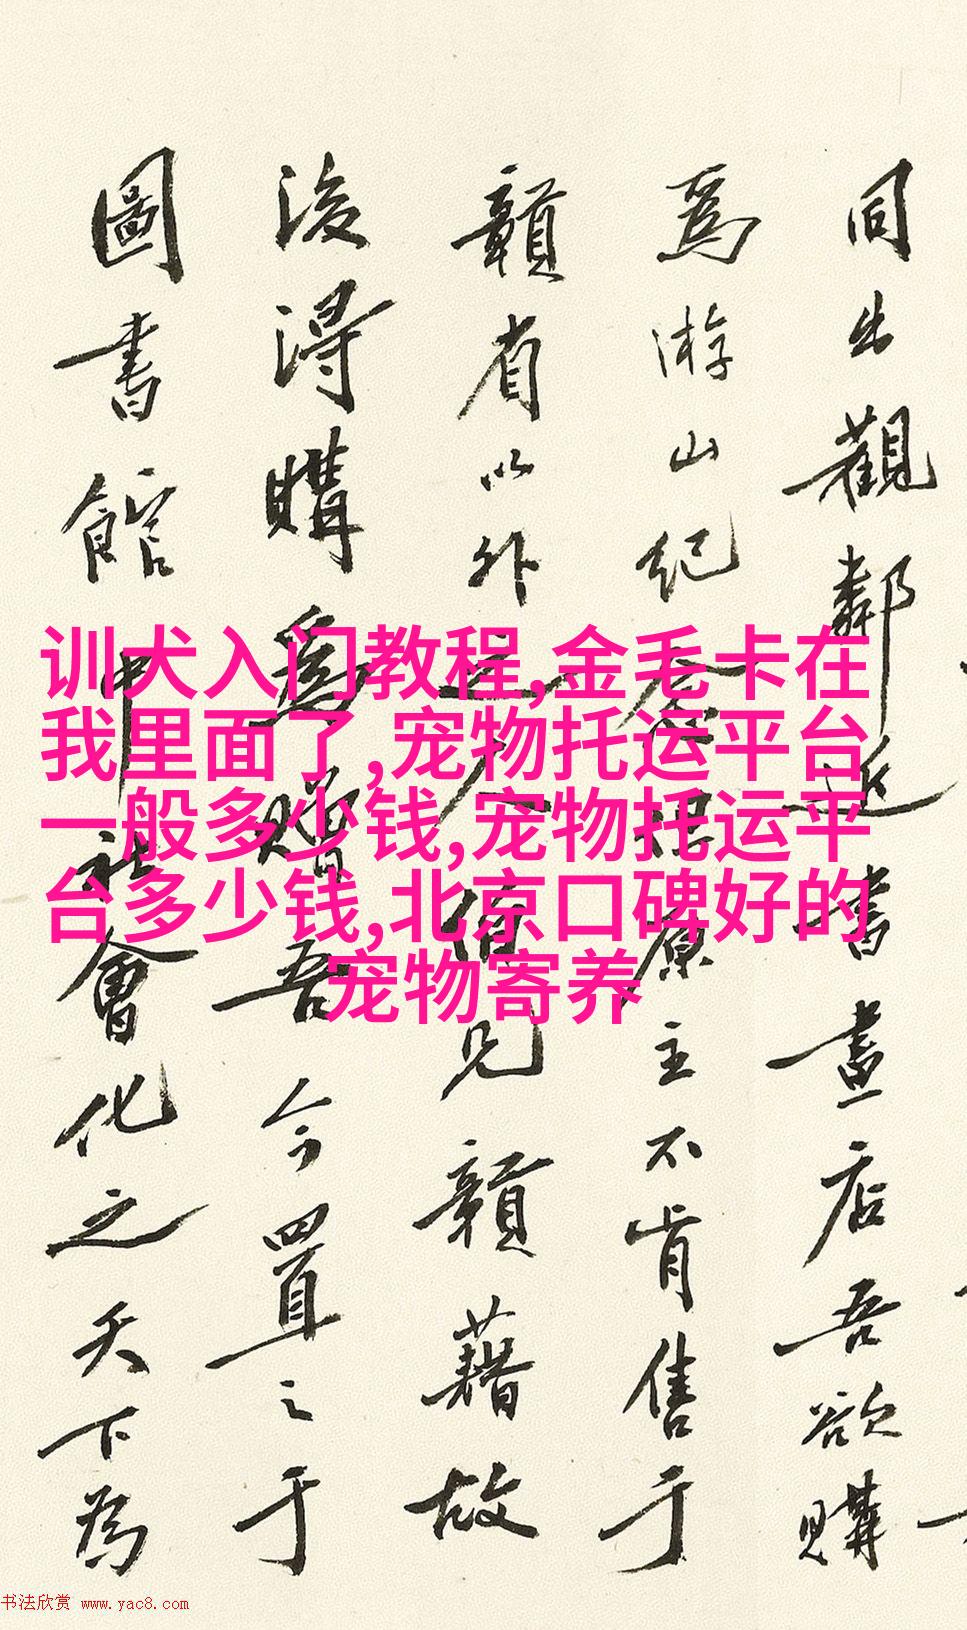 同出觀鄰近書畫店吾欲購
爲游山紀念原主不肯售于
贛省以外之人伯兄贛藉故
後得購爲贈吾今置之于
圖書館中社會化之天下為
训犬入门教程,金毛卡在
我里面了,宠物托运平台
一般多少钱,宠物托运平
台多少钱,北京口碑好的
宠物寄养
书法欣赏 www.yac8.com